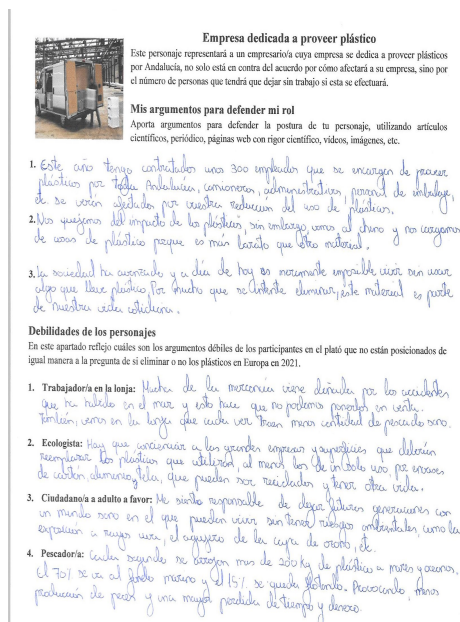 Empresa dedicada a proveer plástico
Este personaje representará a un empresario/a cuya empresa se dedica a proveer plásticos
por Andalucía, no solo está en contra del acuerdo por cómo afectará a su empresa, sino por
el número de personas que tendrá que dejar sin trabajo si esta se efectuará.
Mis argumentos para defender mi rol
Aporta argumentos para defender la postura de tu personaje, utilizando artículos
científicos, periódico, páginas web con rigor científico, vídeos, imágenes, etc.
1. Este año tengo contratados unos 300 empleados que se encargan de proveer
plásticos por toda Andalucía, camioneros, administrativos, personal de embalaje,
etc. se verán afectados por vuestra reducción del uso de plásticos.
2. Nos quejamos del impacto de los plásticos, sin embargo, vamos al chino y nos cargamos
de cosas de plástico porque es más barato que otro material.
3. La sociedad ha avanzado y a día de hoy es imposible vivir sin usar
algo que lleve plástico. Por mucho que se intente eliminar, este material es parte
de nuestra vida cotidiana.
Debilidades de los personajes
En este apartado reflejo cuáles son los argumentos débiles de los participantes en el plató que no están posicionados de
igual manera a la pregunta de si eliminar o no los plásticos en Europa en 2021.
1. Trabajador/a en la lonja: Mucha de la mercancía viene dañada por los accidentes
que ha habido en el mar y esto hace que no podamos ponerlos en venta.
También, vemos en la lonja que cada vez traen menos cantidad de pescado sano.
2. Ecologista: Hay que concienciar a las grandes empresas y superficies que deberán
reemplazar los plásticos que utilizan, al menos los de un solo uso, por envases
de cartón, aluminio, tela, que puedan ser reciclados y tener otra vida.
3. Ciudadano/a a adulto a favor: Me siento responsable de dejar futuras generaciones con
un mundo sano en el que puedan vivir sin tener riesgos ambientales, como la
exposición a rayos uva, el agujero de la capa de ozono, etc.
4. Pescador/a: Cada segundo se arrojan mas de 200 kg de plástico a mares y oceanos.
El 70% se va al fondo marino y el 15% se queda flotando. Provocando, menos
producción de peces y una mayor perdida de tiempo y dinero.